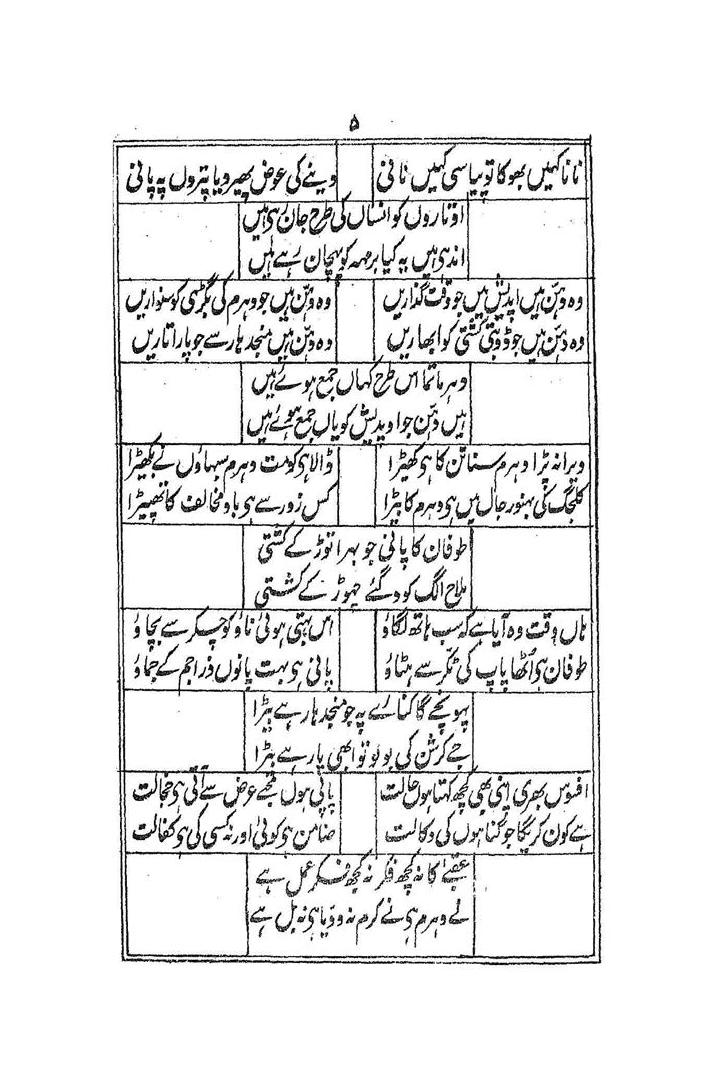 ۵
نانا کہیں بھوکا تو پیاسی کہیں نانی دینے کی عوض پھیر دیا پتروں پہ پانی
اوتاروں کو انساں کی طرح جان رہی ہیں
اندہی ہیں یہ کیا برمہہ کو پہچان رہے ہیں
وہ دہن ہیں اپدیش میں جو وقت گذاریں وہ دہن ہیں جو دہرم کی بگڑہی کو سنواریں
وہ دہن ہیں جو ڈوبتی کشتی کو ابھاریں وہ دہن ہیں منجدہار سے جو پار اتاریں
دہرماتما اس طرح کہاں جمع ہوئے ہیں
ہیں دہن جو اوپدیش کو یاں جمع ہوئے ہیں
ویرانہ پڑا دہرم سناتن کا ہی کھیڑا ڈالا ہی کومت دہرم سبھاؤں نے بکھیڑا
کلجگ کی بہنور جال میں ہی دہرم کا بیڑا کس زور سے ہی باد مخالف کا تھپیڑا
طوفان کا پانی جو بہرا توڑ کے کشتی
ملاح الگ کود گئے چھوڑ کے کشتی
ہاں وقت وہ آیا ہے کہ سب ہاتھ لگاؤ اس بہتی ہوئی ناؤ کو چکر سے بچاؤ
طوفان ہی اٹھا پاپ کی ٹکر سے ہٹاؤ پانی ہی بہت پانوں ذرا جم کے جماؤ
پہونچے گا کنارے پہ جو منجدہار ہے بیڑا
جے کرشن کی بولو تو ابھی پار ہے بیڑا
افسوس بھری اپنی بھی کچھ کہتا ہوں حالت پاپی ہوں مجھے عرض سے آتی ہی خجالت
ہے کون کریگا جو گناہوں کی وکالت ضامن ہی کوئی اور نہ کسی کی ہی کفالت
عقبےٰ کا نہ کچھ فکر نہ کچھ فکر عمل ہے
نے دہرم ہی نے کرم نہ ودیا ہی نہ بل ہے